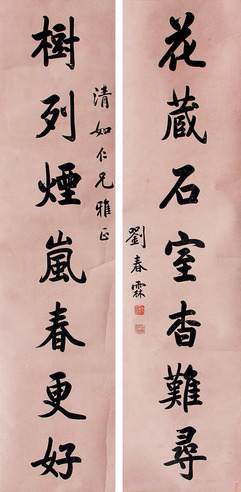 花藏石室杳難尋
劉春霖
清如仁兄雅正
樹列煙嵐春更好